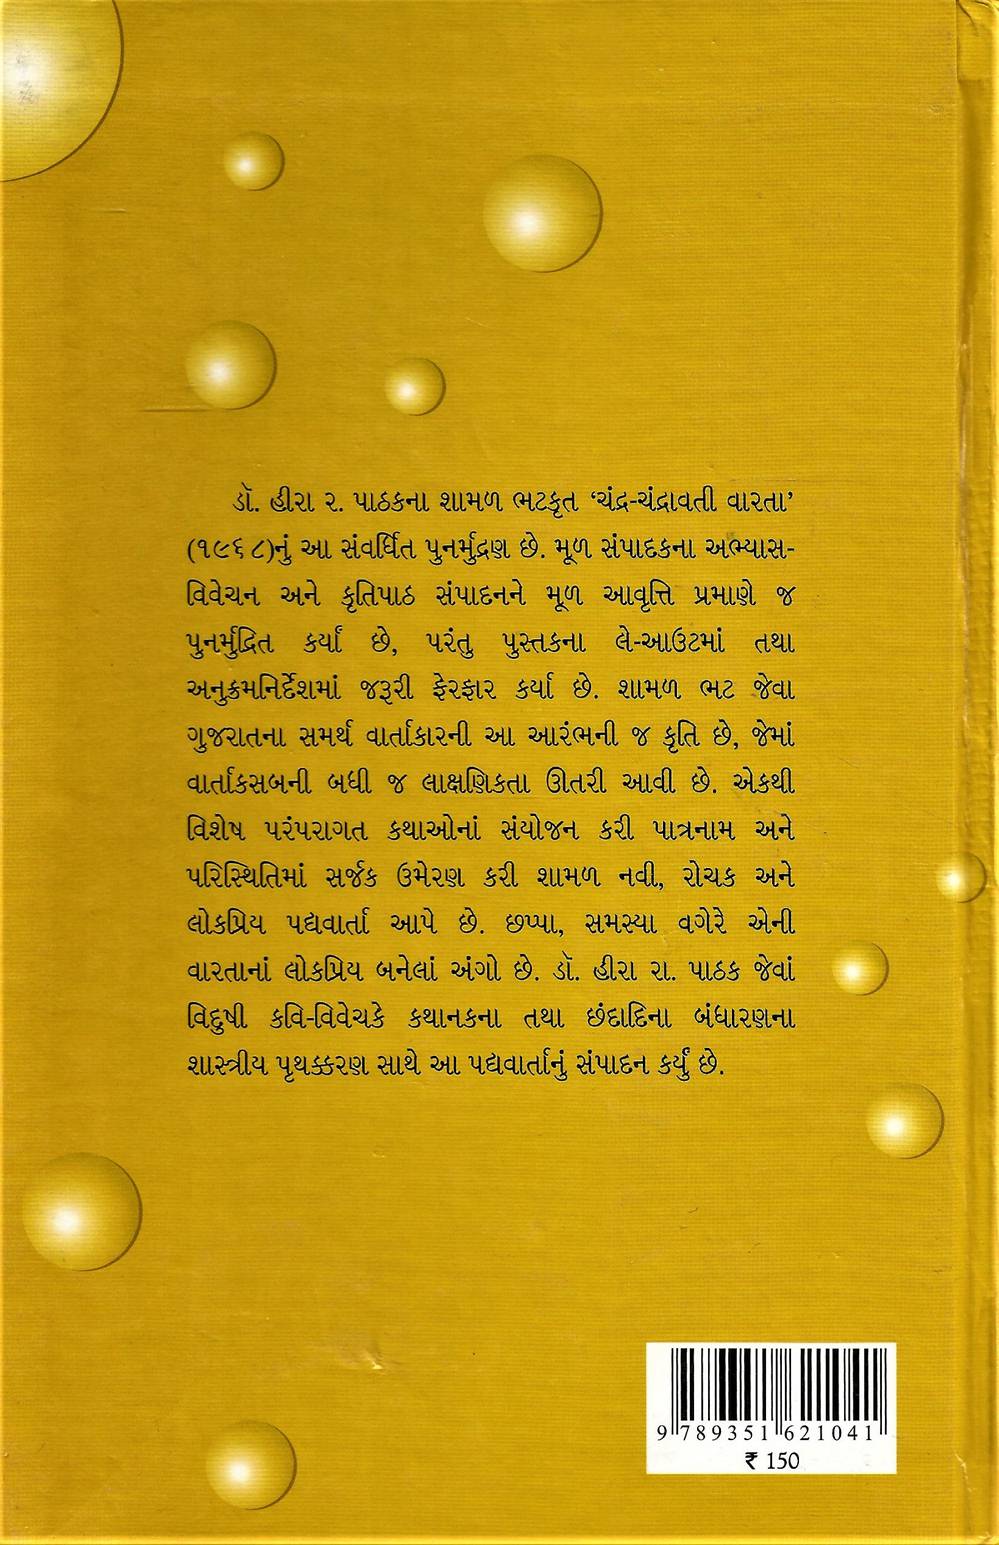 ડૉ. હીરા ર. પાઠકના શામળ ભટકૃત ‘ચંદ્ર-ચંદ્રાવતી વારતા’
(૧૯૬૮)નું આ સંવર્ધિત પુનર્મુદ્રણ છે. મૂળ સંપાદકના અભ્યાસ-
વિવેચન અને કૃતિપાઠ સંપાદનને મૂળ આવૃત્તિ પ્રમાણે જ
પુનર્મુદ્રિત કર્યાં છે, પરંતુ પુસ્તકના લે-આઉટમાં તથા
અનુક્રમનિર્દેશમાં જરૂરી ફેરફાર કર્યા છે. શામળ ભટ જેવા
ગુજરાતના સમર્થ વાર્તાકારની આ આરંભની જ કૃતિ છે, જેમાં
વાર્તાકસબની બધી જ લાક્ષણિકતા ઊતરી આવી છે. એકથી
વિશેષ પરંપરાગત કથાઓનાં સંયોજન કરી પાત્રનામ અને
પરિસ્થિતિમાં સર્જક ઉમેરણ કરી શામળ નવી, રોચક અને
લોકપ્રિય પદ્યવાર્તા આપે છે. છપ્પા, સમસ્યા વગેરે એની
વારતાનાં લોકપ્રિય બનેલાં અંગો છે. ડૉ. હીરા રા. પાઠક જેવાં
વિદુષી કવિ-વિવેચકે કથાનકના તથા છંદાદિના બંધારણના
શાસ્ત્રીય પૃથક્કરણ સાથે આ પદ્યવાર્તાનું સંપાદન કર્યું છે.
9 789351 621041
₹ 150